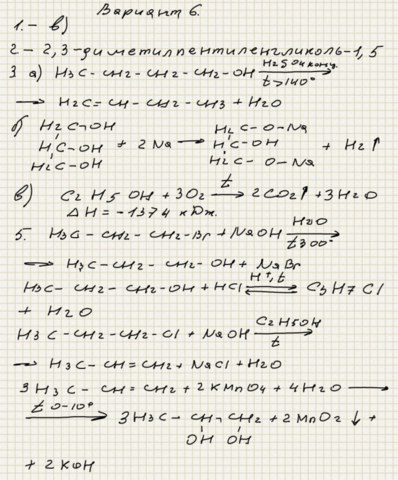 Вариант 6.
1. - в)
2 - 2,3-диметилпентиленгликоль-1,5
3 а) H3C-CH2-CH2-CH2-OH H2SO4 конц. t>140°
→ H2C=CH-CH2-CH3 + H2O
б) H2C-OH H2C-O-Na
HC-OH + 2Na → HC-OH + H2↑
H2C-OH H2C-O-Na
в) C2H5OH + 3O2 t→ 2CO2↑ + 3H2O
ΔH = -1374 кДж.
5. H3C-CH2-CH2-Br + NaOH H2O t300° →
→ H3C-CH2-CH2-OH + NaBr
H3C-CH2-CH2-OH + HCl H⁺,t ⇌ C3H7Cl
+ H2O
H3C-CH2-CH2-Cl + NaOH C2H5OH t →
→ H3C-CH=CH2 + NaCl + H2O
3H3C-CH=CH2 + 2KMnO4 + 4H2O →
t 0-10° → 3H3C-CH-CH2 + 2MnO2↓ +
OH OH
+ 2KOH